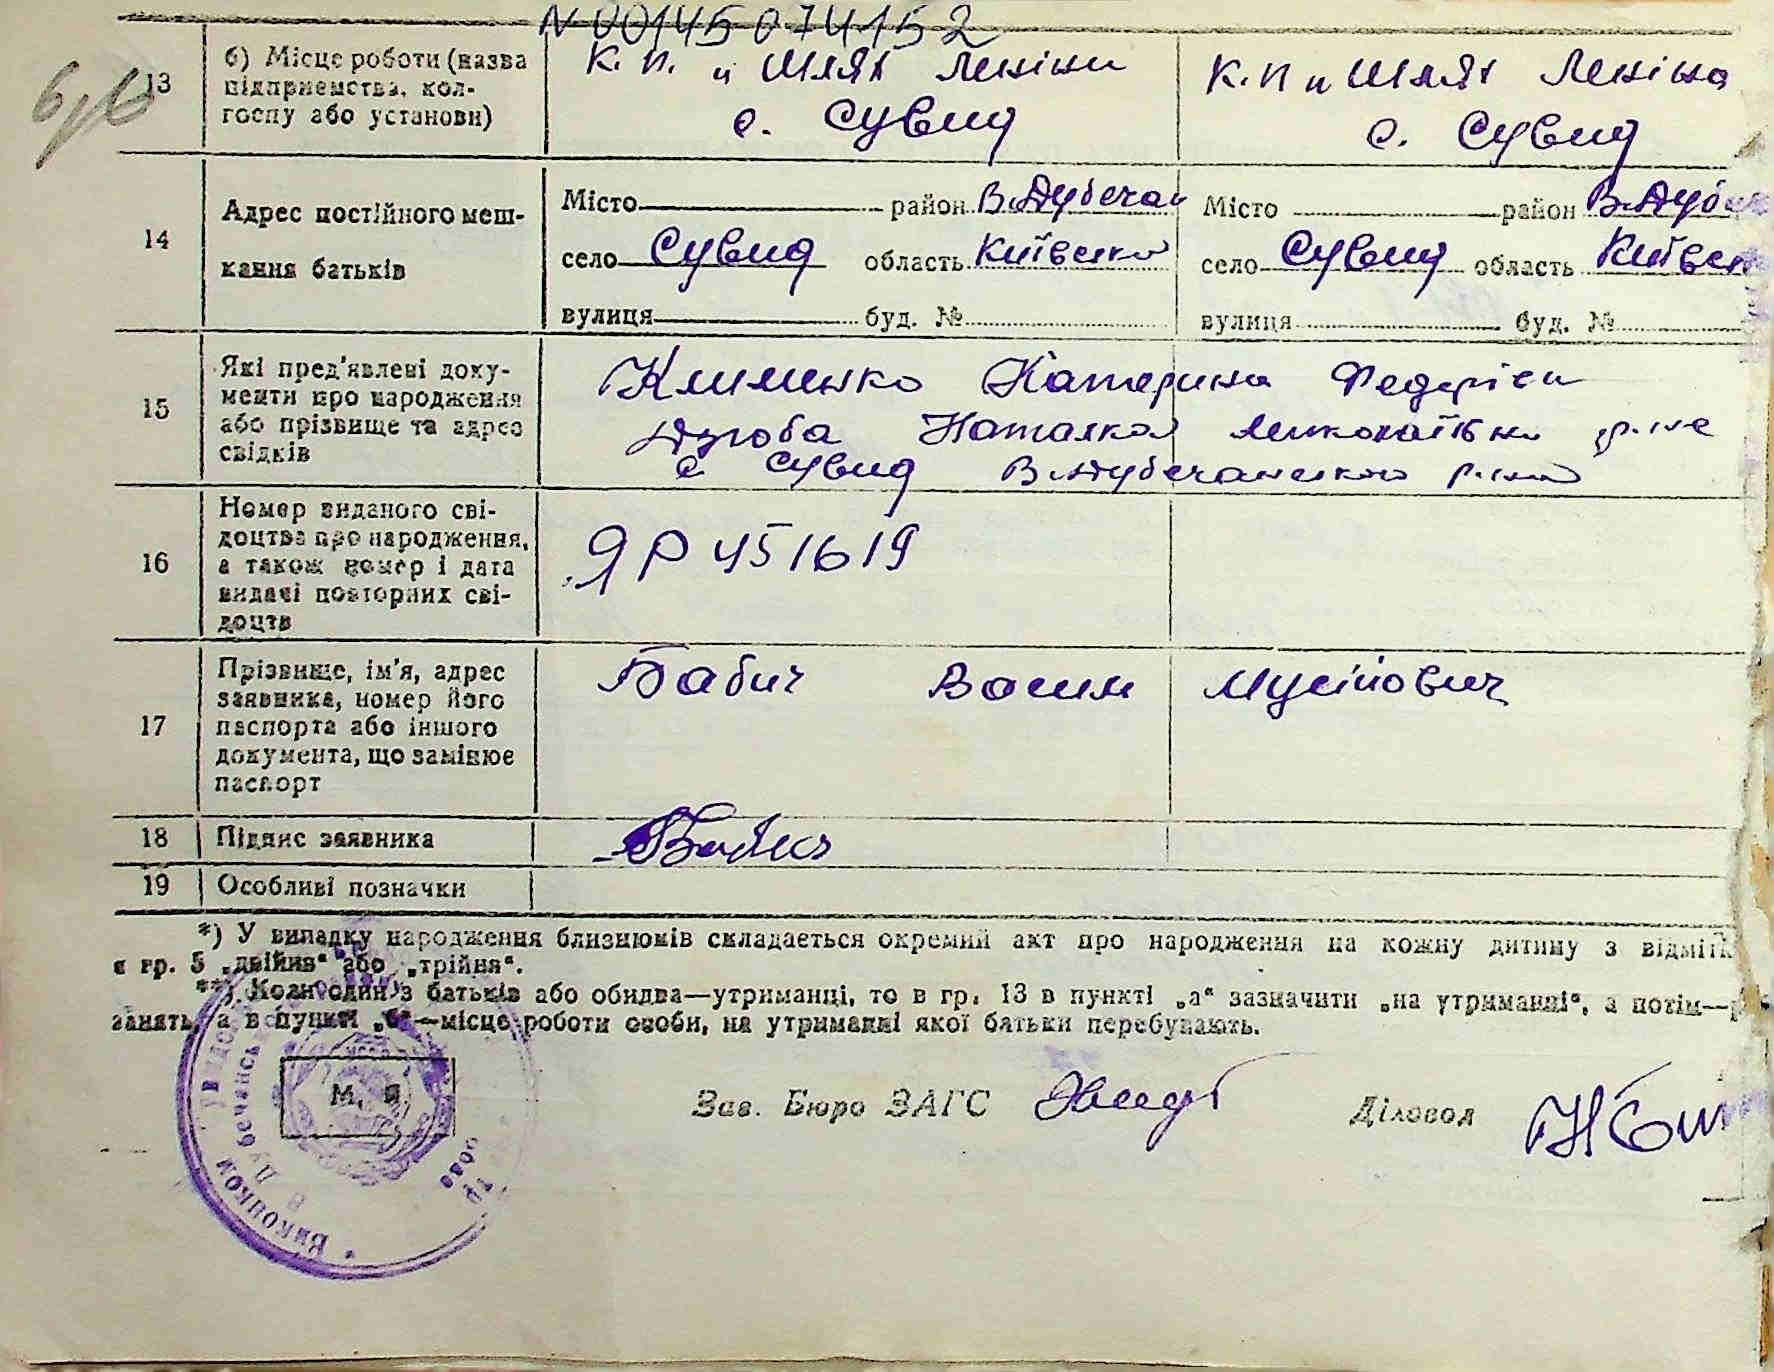 N 00145074152
б/в
13 б) Місце роботи (назва підприємства, колгоспу або установи)
К. п. "Шлях Леніна
с. Сувид
К. п "Шлях Леніна
с. Сувид
14 Адрес постійного мешкання батьків
Місто район В.Дубечан
село Сувид область Київсько
вулиця буд. №
Місто район В.Дубе
село Сувид область Київсь
вулиця буд. №
15 Які пред'явлені документи про народження або прізвище та адрес свідків
Клименко Катерина Федорівн
Дзюба Наталка Миколаївна
с Сувид В.Дубечанського р-ну
16 Номер виданого свідоцтва про народження, а також номер і дата видачі повторних свідоцтв
ЯР 451619
17 Прізвище, ім'я, адрес заявника, номер його паспорта або іншого документа, що замінює паспорт
Бабич Васил Мусійович
18 Підпис заявника
Бабич
19 Особливі позначки
*) У випадку народження близнюків складається окремий акт про народження на кожну дитину з відмітк
в гр. 5 „двійня“ або „трійня“.
**) Коли один з батьків або обидва—утриманці, то в гр. 13 в пункті „а“ зазначити „на утриманні“, а потім—
занять, а в пункті „б“—місце роботи особи, на утриманні якої батьки перебувають.
М. П.
Зав. Бюро ЗАГС
Діловод
Виконком